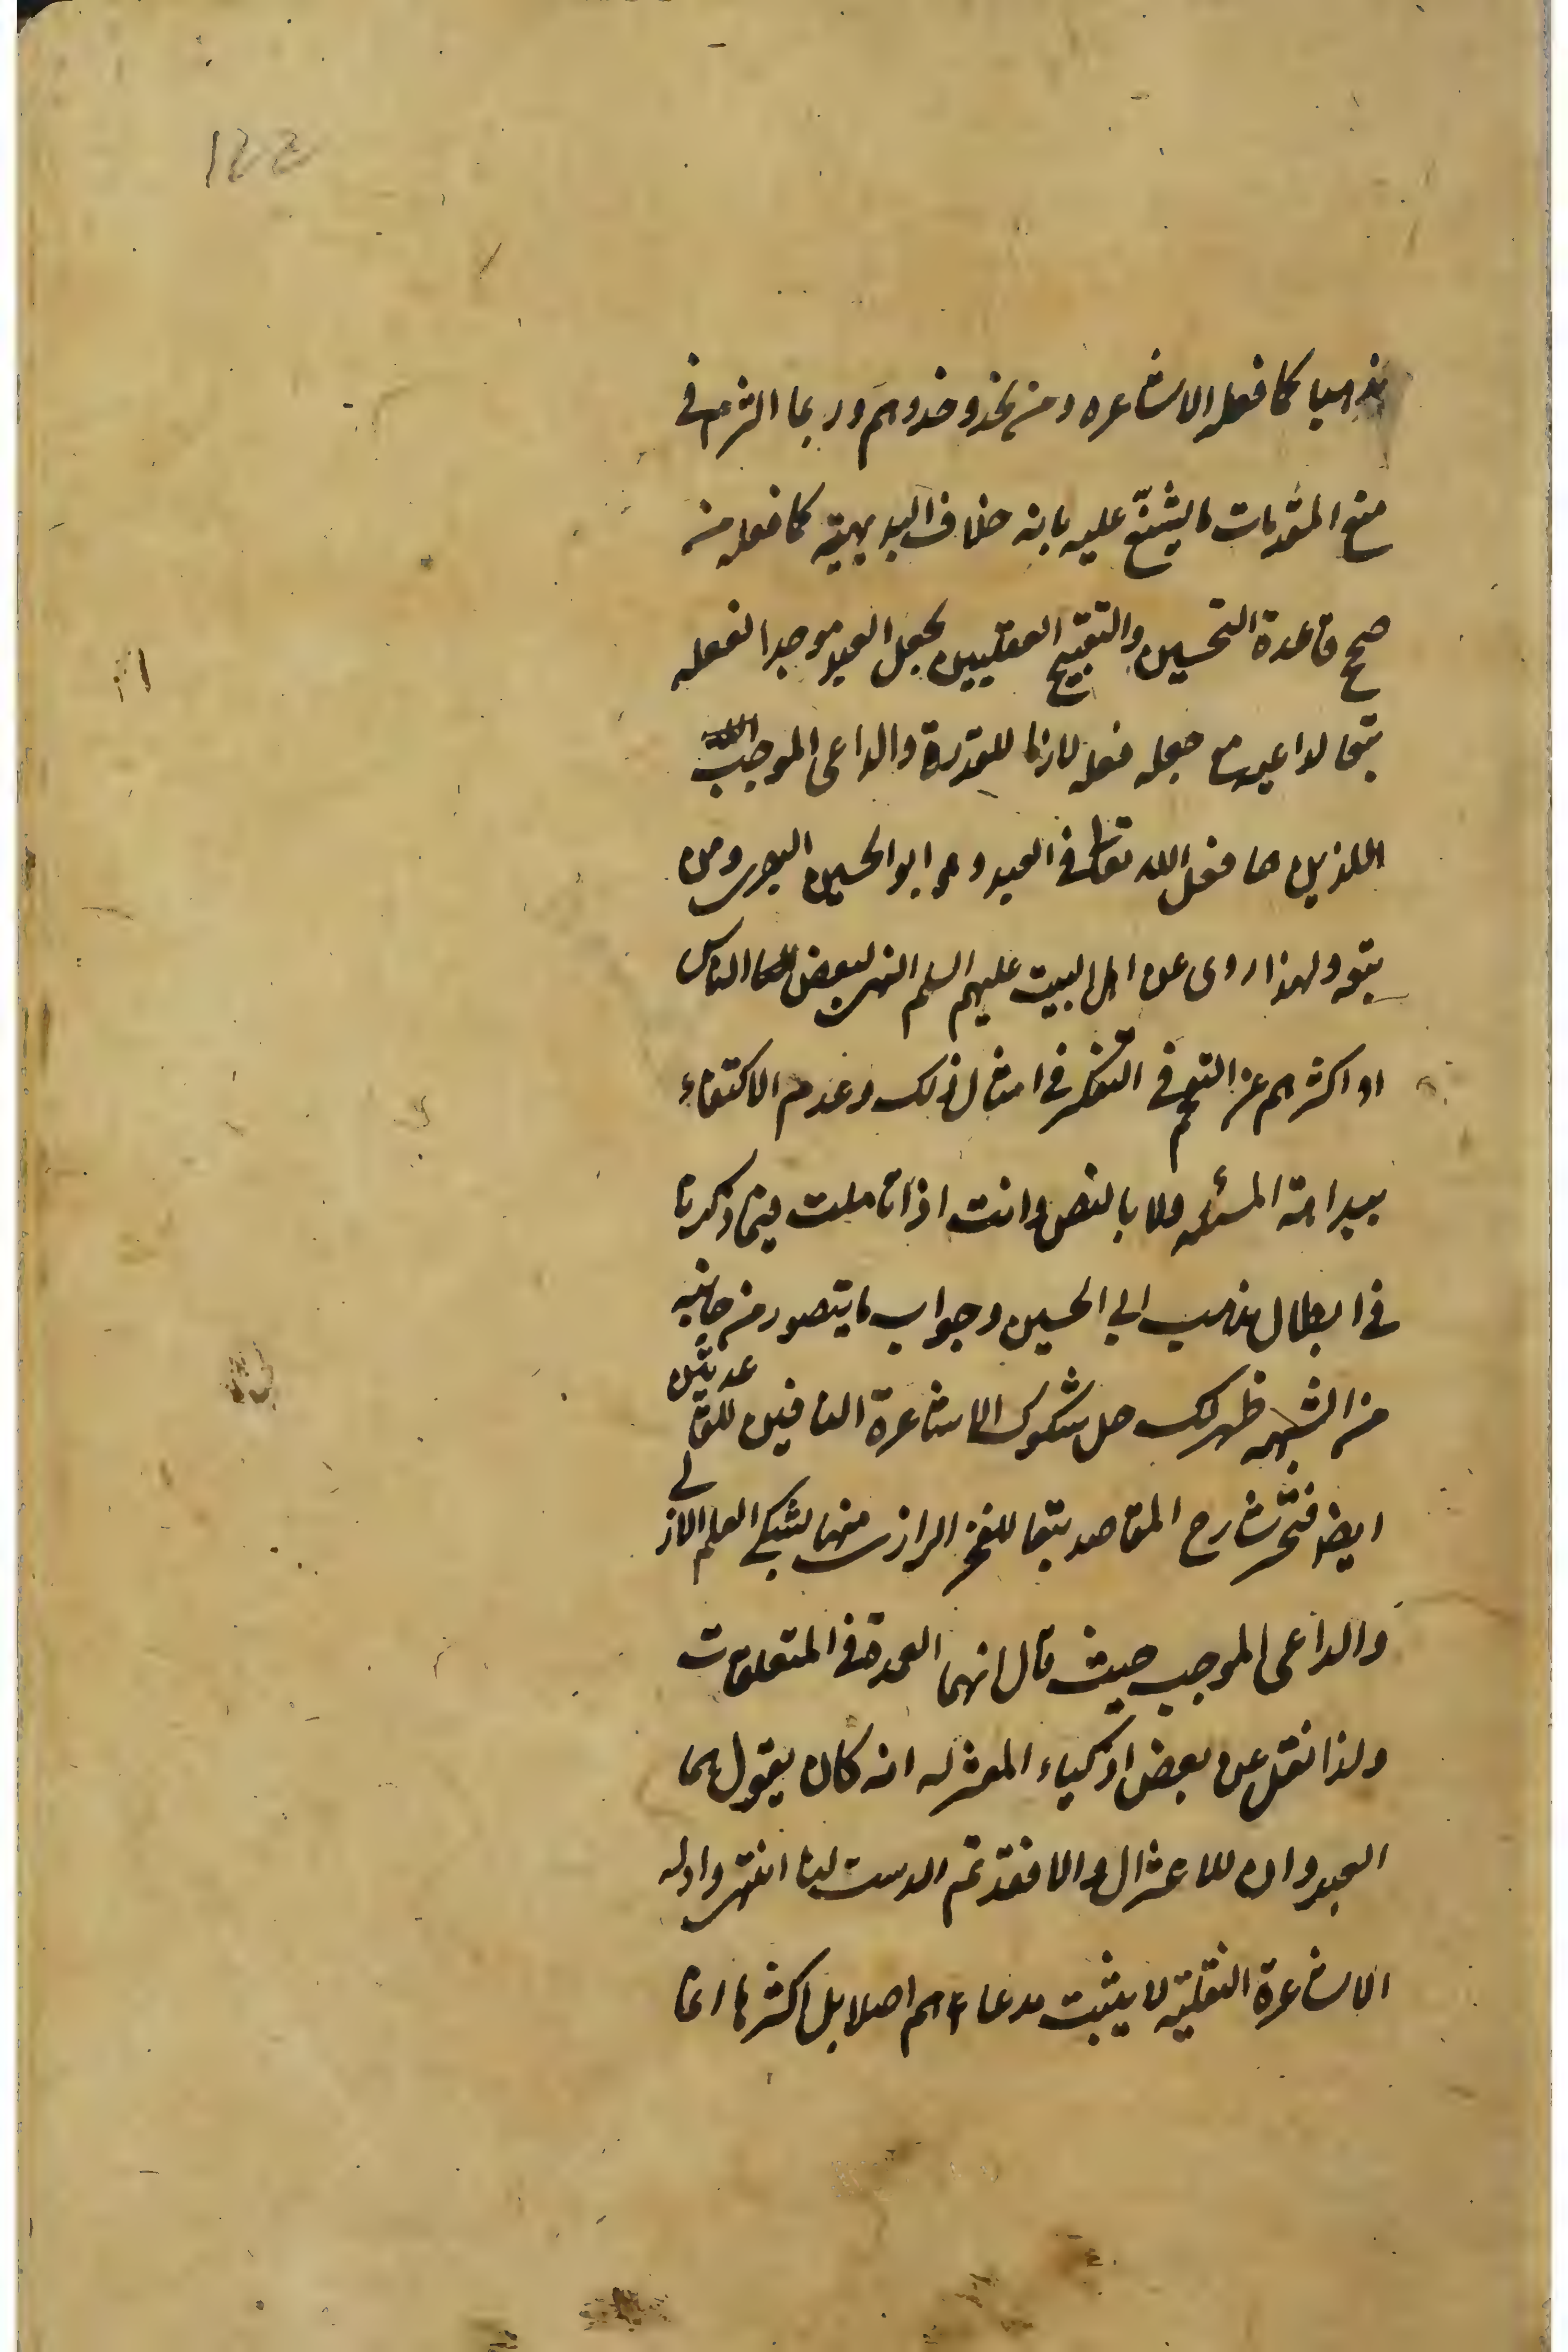 ١٤٤
مذهبا كما فعله الاشاعره ومن يحذو حذوهم وربما التزم في
منع المقدمات ما يشنّع عليه بانه خلاف البديهية كما فعله من
صحح قاعدة التحسين والتقبيح العقليين بجعل العبد موجدا لفعله
تبعا لداعيه مع جعله فعله لازما للقدرة والداعي الموجب
اللذين هما فعل الله تعالى في العبد وهو ابو الحسين البصرى ومن
تبعه ولهذا روى عن اهل البيت عليهم السلم النهى لبعض الناس
او اكثرهم عن التعمق في التفكر في امثال ذلك وعدم الاكتفاء
ببداهة المسئلة ولا بالنص وانت اذا تاملت فيما ذكرنا
في ابطال مذهب ابي الحسين وجواب ما يتصور من جانبه
من الشبهه ظهر لك حل شكوك الاشاعرة النافين للقاعدتين
ايضا شارح المقاصد تبعا للفخر الرازى منها بشبهتي العلم الازلي
والداعي الموجب حيث قال انهما العمدة في المتعلقات
ولذا نقل عن بعض اذكياء المعتزله انه كان يقول هما
العدوان للاعتزال والا فقد تم الدست لنا انتهى وادله
الاشاعرة النقلية لا يثبت مدعاءهم اصلا بل اكثرها انما